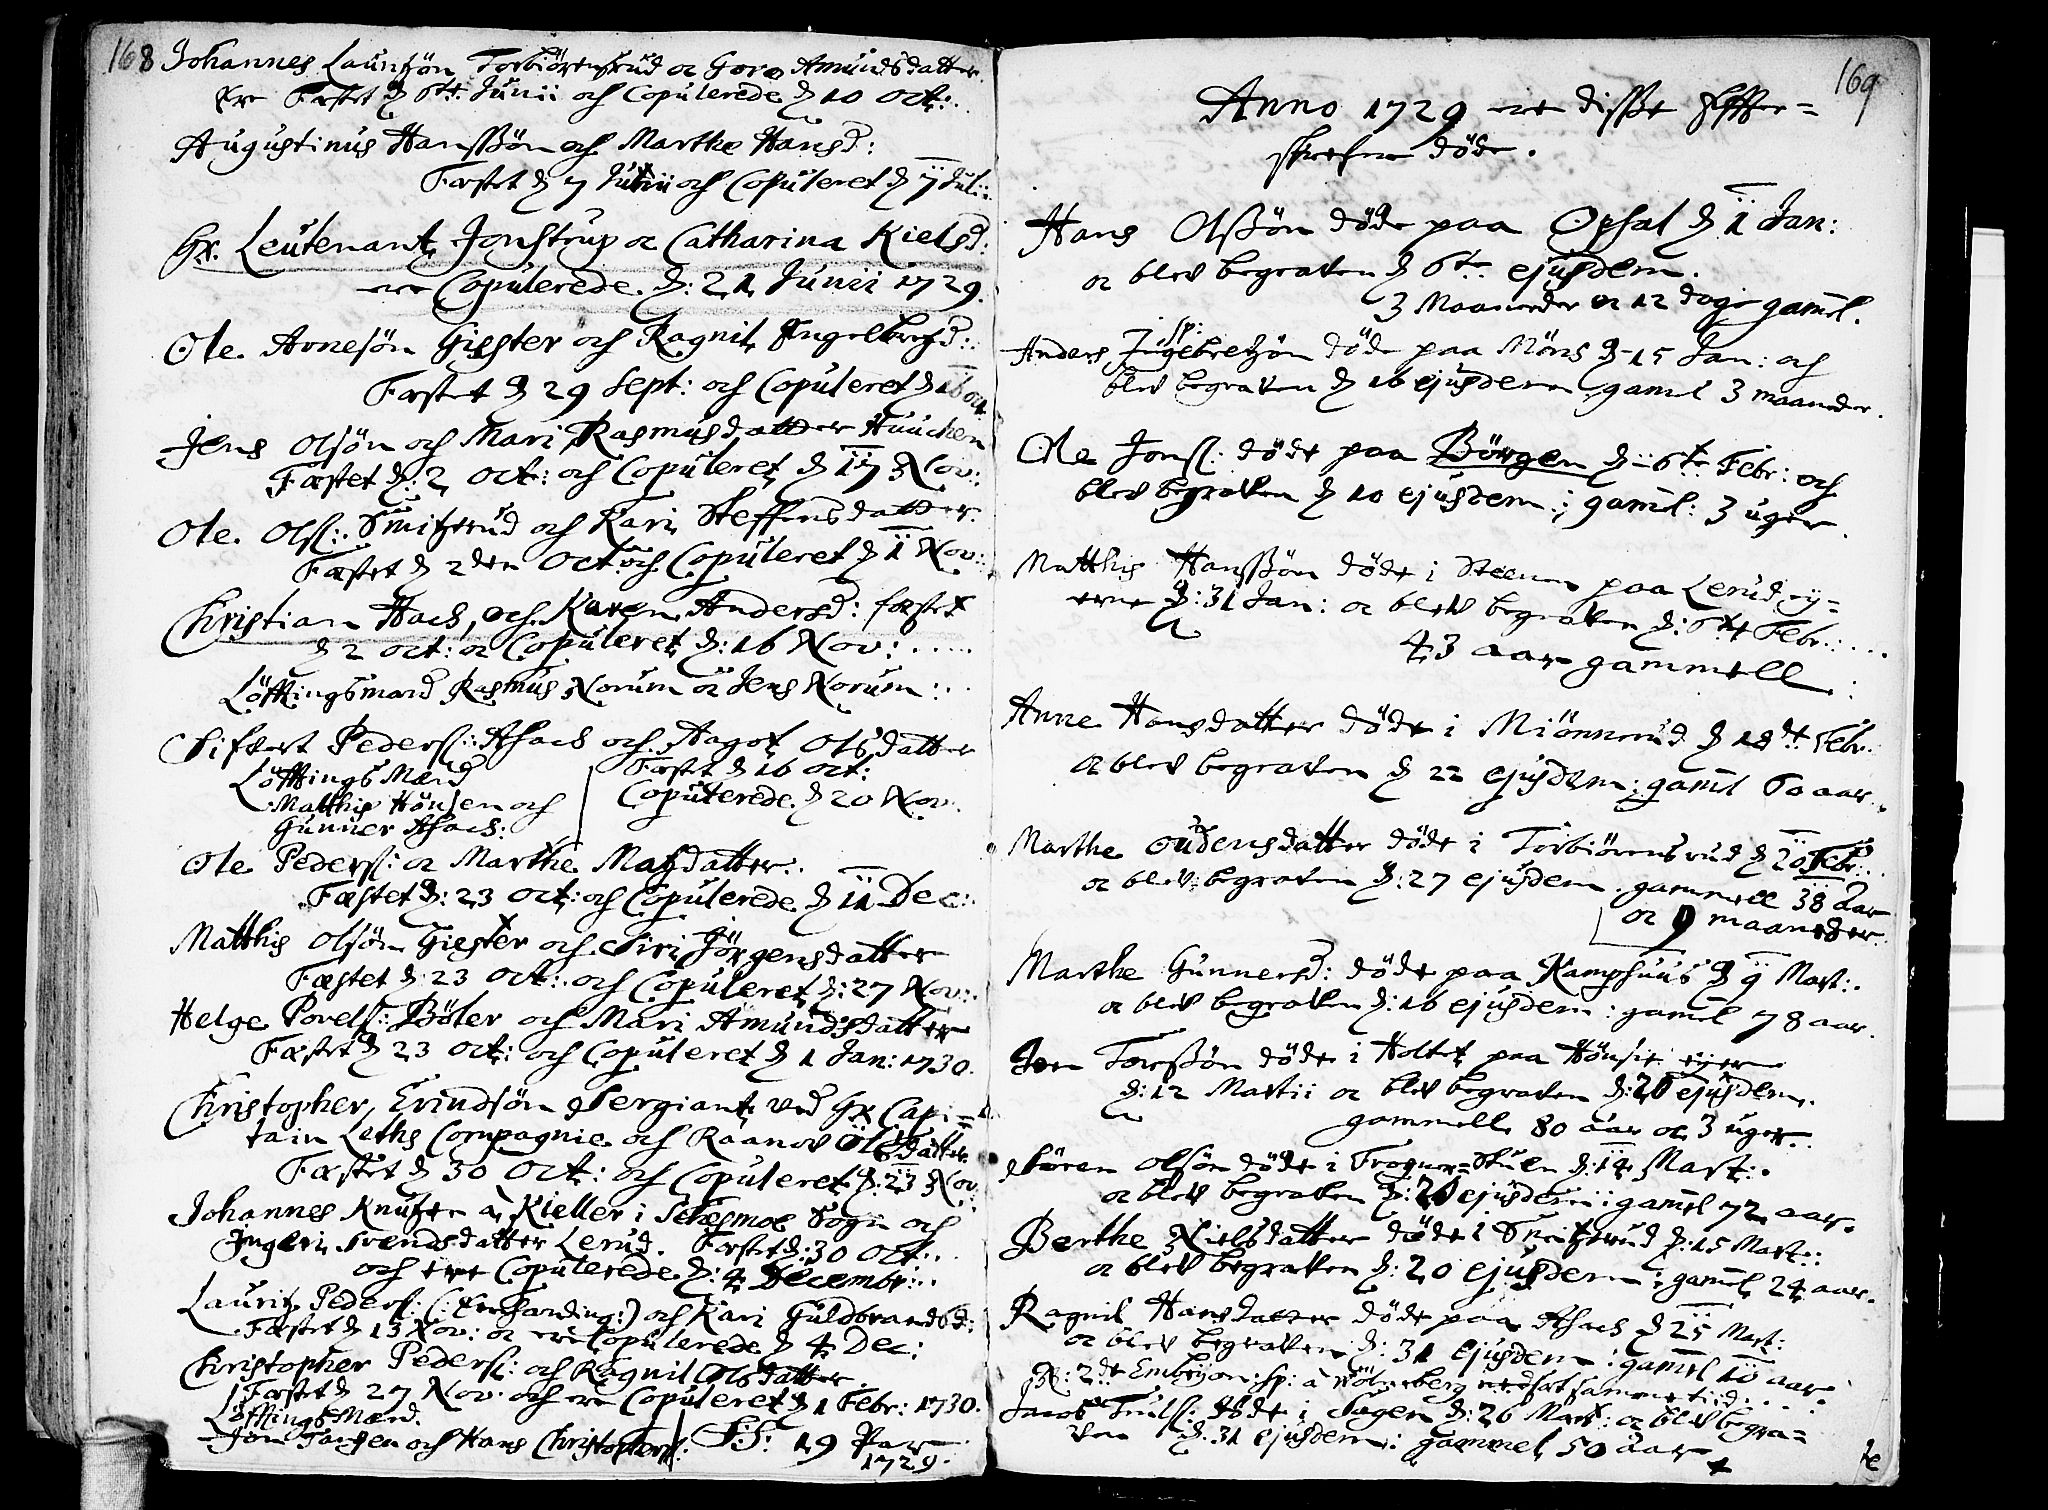 168
Johannes Laursön Torbiörensrud oc Goro Amundsdatter
ere Fæstet d 6te Junii och Copulerede d 10 Oct:
Augustinus Hansßön och Marthe Hansd:
Fæstet d 7 Junii och Copuleret d 7 Julii
Hr. Leutenant Jonstrup oc Catharina Kielsd:
ere Copulerede d: 21 Junii 1729.
Ole Arnesön Giester och Ragnil Engelbregd:
Fæstet d 29 Sept: och Copuleret d 16 oct.
Jens Olsön och Mari Rasmusdatter Huuchen
Fæstet d: 2 Oct: och Copuleret d 17 Nov:
Ole Olss: Smitzrud och Kari Steffensdatter
Fæstet d 2den Oct: och Copuleret d 1 Nov:
Christian Hach, och Karen Andersd: fæstet
d 2 Oct: oc Copuleret d: 16 Nov:
Löftingsmænd Rasmus Norum oc Jens Norum:
Sifvert Peders: Asach och Aagot Olsdatter
Löftings Mænd
Matthis Hönsen och
Gunner Asach:
Fæstet d 16 Oct:
Copulerede d 20 Nov.
Ole Peders: oc Marthe Matzdatter
Fæstet d: 23 Oct: och Copulerede d 11 Dec:
Matthis Olsön Giester och Siri Jörgensdatter
Fæstet d: 23 Oct: och Copuleret d: 27 Nov:
Helge Povels: Böler och Mari Amundsdatter
Fæstet d 23 Oct: och Copuleret d 1 Jan: 1730.
Christopher Erindsön Sergiant ved Hr Capi=
tain Leths Compagnie och Raanov Olsdatter
Fæstet d 30 Oct: och Copuleret d: 23 Nov:
Johannes Knutzen a Kieller i Schesmoe Sogn och
Ingeri Svendsdatter Lerud. Fæstet d: 30 Oct:
och ere Copulerede d: 4 Decembr:
Lauritz Peders: och Kari Guldbrandsd:
Fæstet d 13 Nov: oc ere Copulerede d 4 Dec:
Christopher Peders: och Ragnil Olsdatter
Fæstet d 27 Nov. och ere Copuleret d 1 Febr: 1730.
Löftings Mænd.
Jon Jansen och Hans Christophers: S: 19 Par
1729.
169
Anno 1729 ere disße Efter=
skrefne döde.
Hans Olsßön döde paa Opsal d 1 Jan:
oc blev begraven d 6te ejusdem.
3 Maaneder oc 12 dage gamel.
sp:
Anders Ingebretzön döde paa Möns d 15 Jan: och
blev begraven d 16 ejusdem gamel 3 maaneder.
Ole Jons: döde paa Börgen d 6te Febr: och
blev begraven d 10 ejusdem: gamel: 3 uger
Matthis Hansßön döde i Steenen paa Lerud ey=
erne d: 31 Jan: oc blev begraven d: 6te Febr:
43 aar gammell.
Anne Hansdatter döde i Miönnerud d 18de Febr:
oc blev begraven d 22 ejusdem: gamel 60 aar
Marthe Oudensdatter döde i Torbiörensrud d 20 Febr:
oc blev begraven d: 27 ejusdem. gammell 38 aar
oc 9 maaneder
Marthe Gunnersd: döde paa Kamphuus d 9 Mart:
oc blev begraven d: 16 ejusdem: gamel 78 aar.
Jon Toresßön döde i Holtet paa Hönsie eyer
d: 12 Martii oc blev begraven d: 20 ejusdem.
gammell 80 aar oc 3 uger.
Sören Olsön döde i Frogner=Stuen d: 14 Mart:
oc blev begraven d: 20 ejusdem: gamel 72 aar.
Berthe Nielsdatter döde i Smitzrud d: 15 Mart:
oc blev begraven d: 20 ejusdem: gamel 24 aar.
Ragnil Hansdatter döde paa Asach d 25 Mart:
oc blev begraven d: 31 ejusdem: gamel 10 aar.
2de Embryon: sp: a nedsat samme tiid
Jacob Truls: döde i Hagen d: 26 Mart: oc blev begra=
ven d. 31 ejusdem: gammel 50 aar